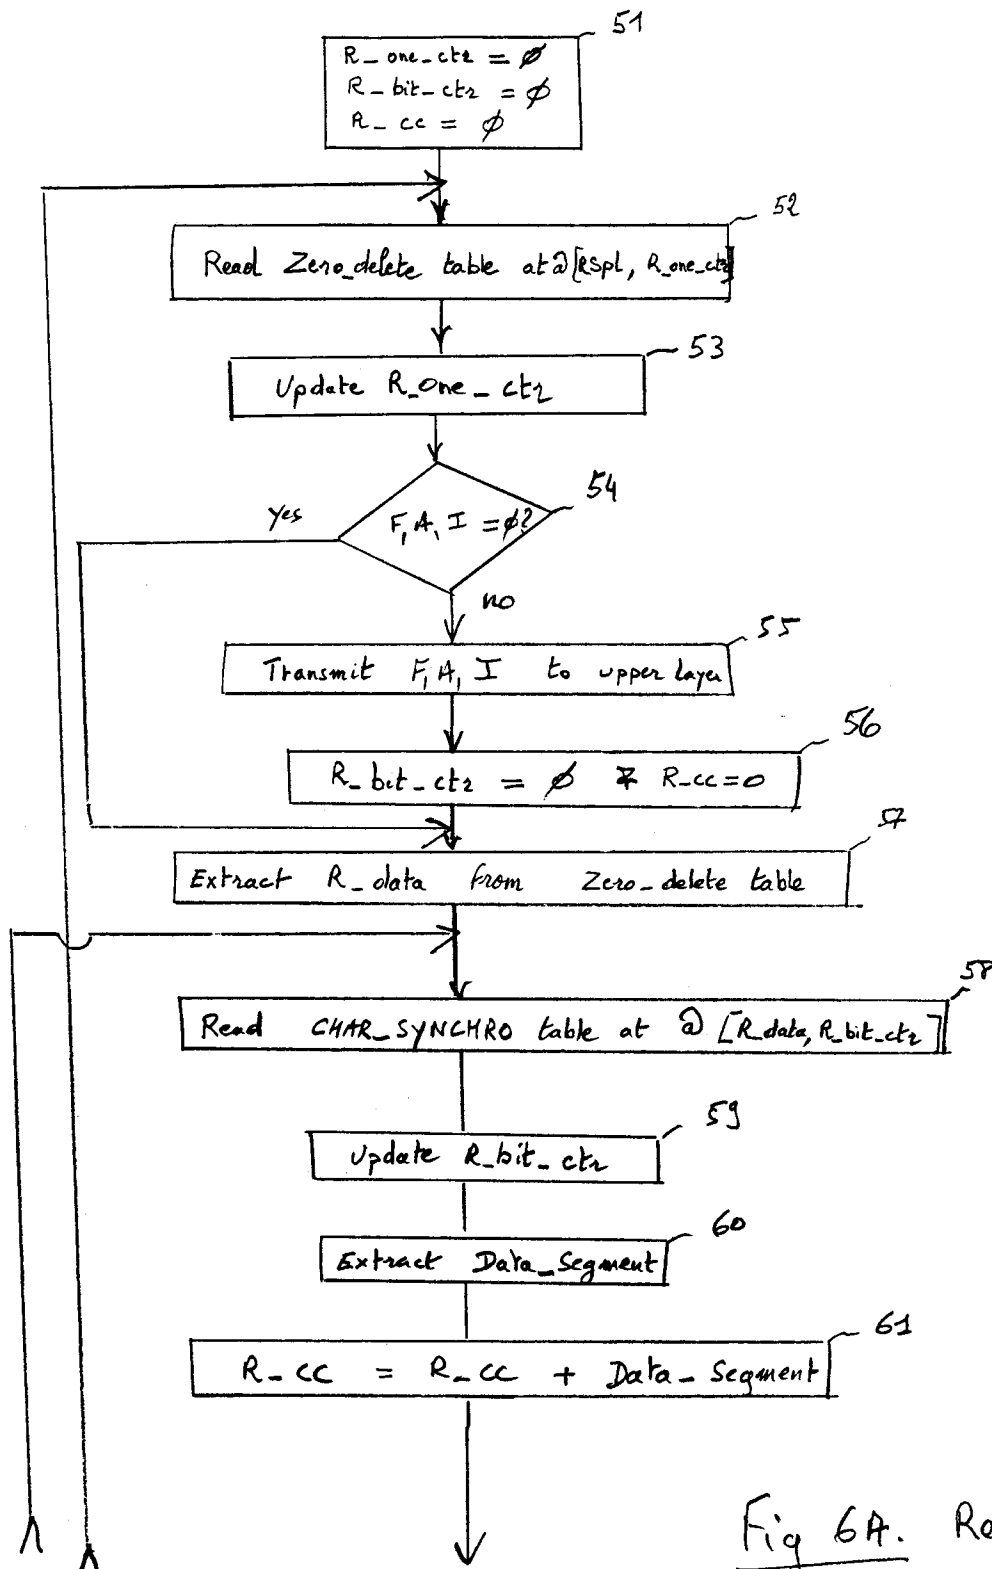 51
R_one_ctr = ø
R_bit_ctr = ø
R_cc = ø
52
Read Zero_delete table at @ [RSpl, R_one_ctr]
53
Update R_one_ctr
54
F, A, I = ø?
Yes
no
55
Transmit F, A, I to upper layer
56
R_bit_ctr = ø R_cc=0
57
Extract R_data from Zero_delete table
58
Read CHAR_SYNCHRO table at @ [R_data, R_bit_ctr]
59
Update R_bit_ctr
60
Extract Data_Segment
61
R_cc = R_cc + Data_Segment
Fig 6A. Re